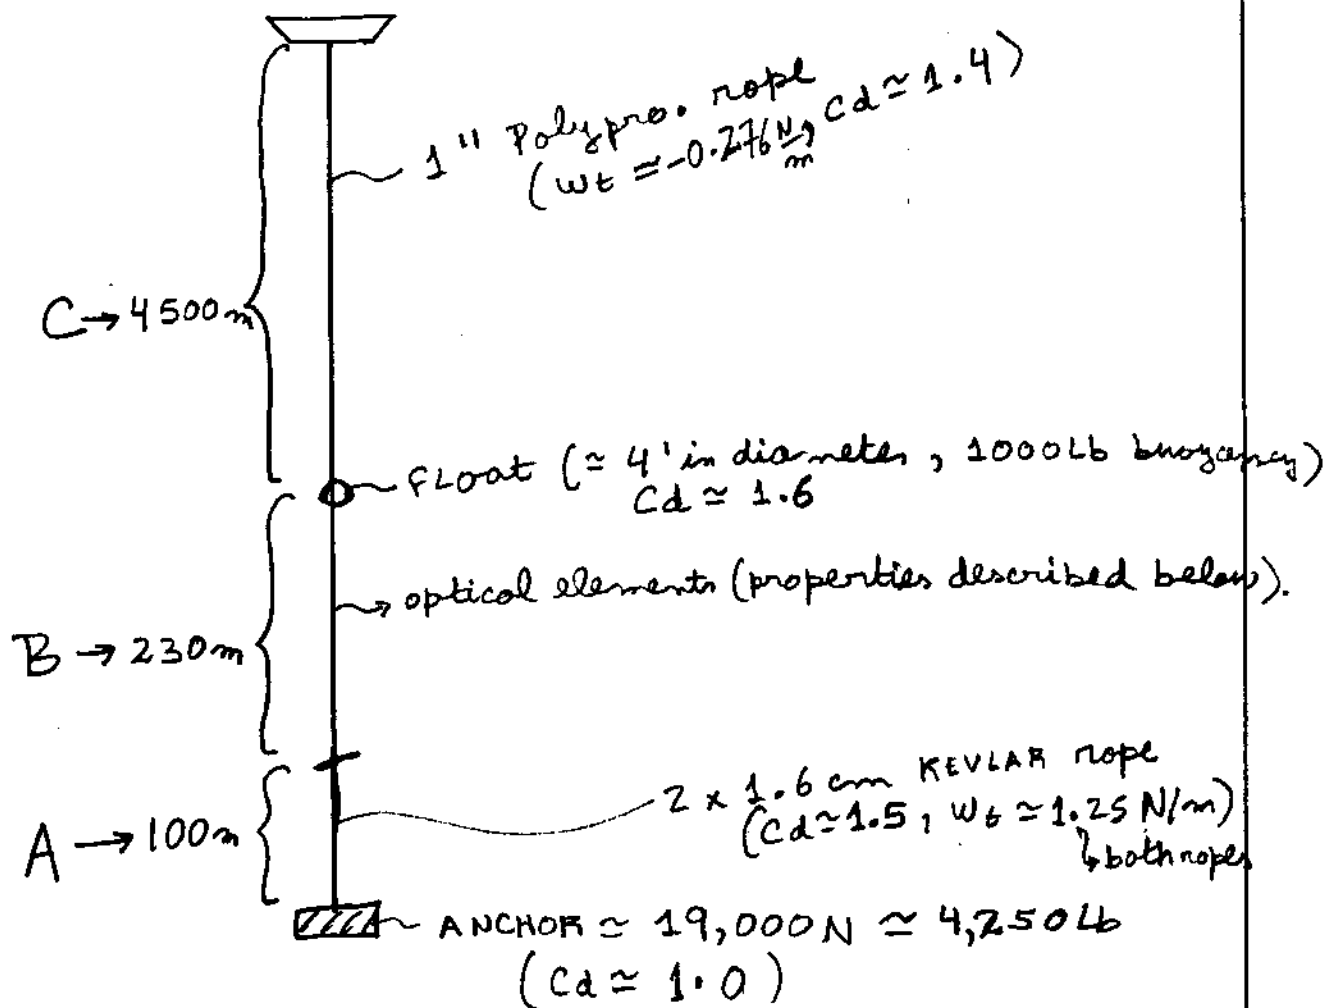 1" Polypro. rope
(wt ≃ -0.276 N/m, Cd ≃ 1.4)
C → 4500m
FLOAT (≃ 4' in diameter, 1000Lb buoyancy)
Cd ≃ 1.6
optical elements (properties described below).
B → 230m
2 x 1.6 cm KEVLAR rope
(Cd ≃ 1.5, Wt ≃ 1.25 N/m)
↳ both ropes
A → 100m
ANCHOR ≃ 19,000N ≃ 4,250Lb
(Cd ≃ 1.0)